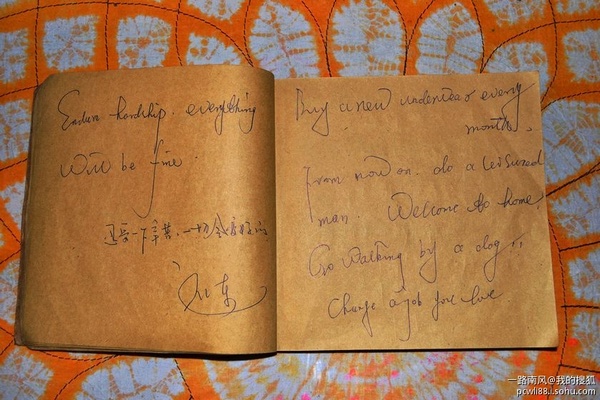 Endure hardship. everything
will be fine.
一下辛苦、一切会
Buy a new underwear every
month.
From now on. do a leisured
man. Welcome to home.
Go walking by a dog
Change a job you love
一路南风@我的搜狐
pcwli88.i.sohu.com